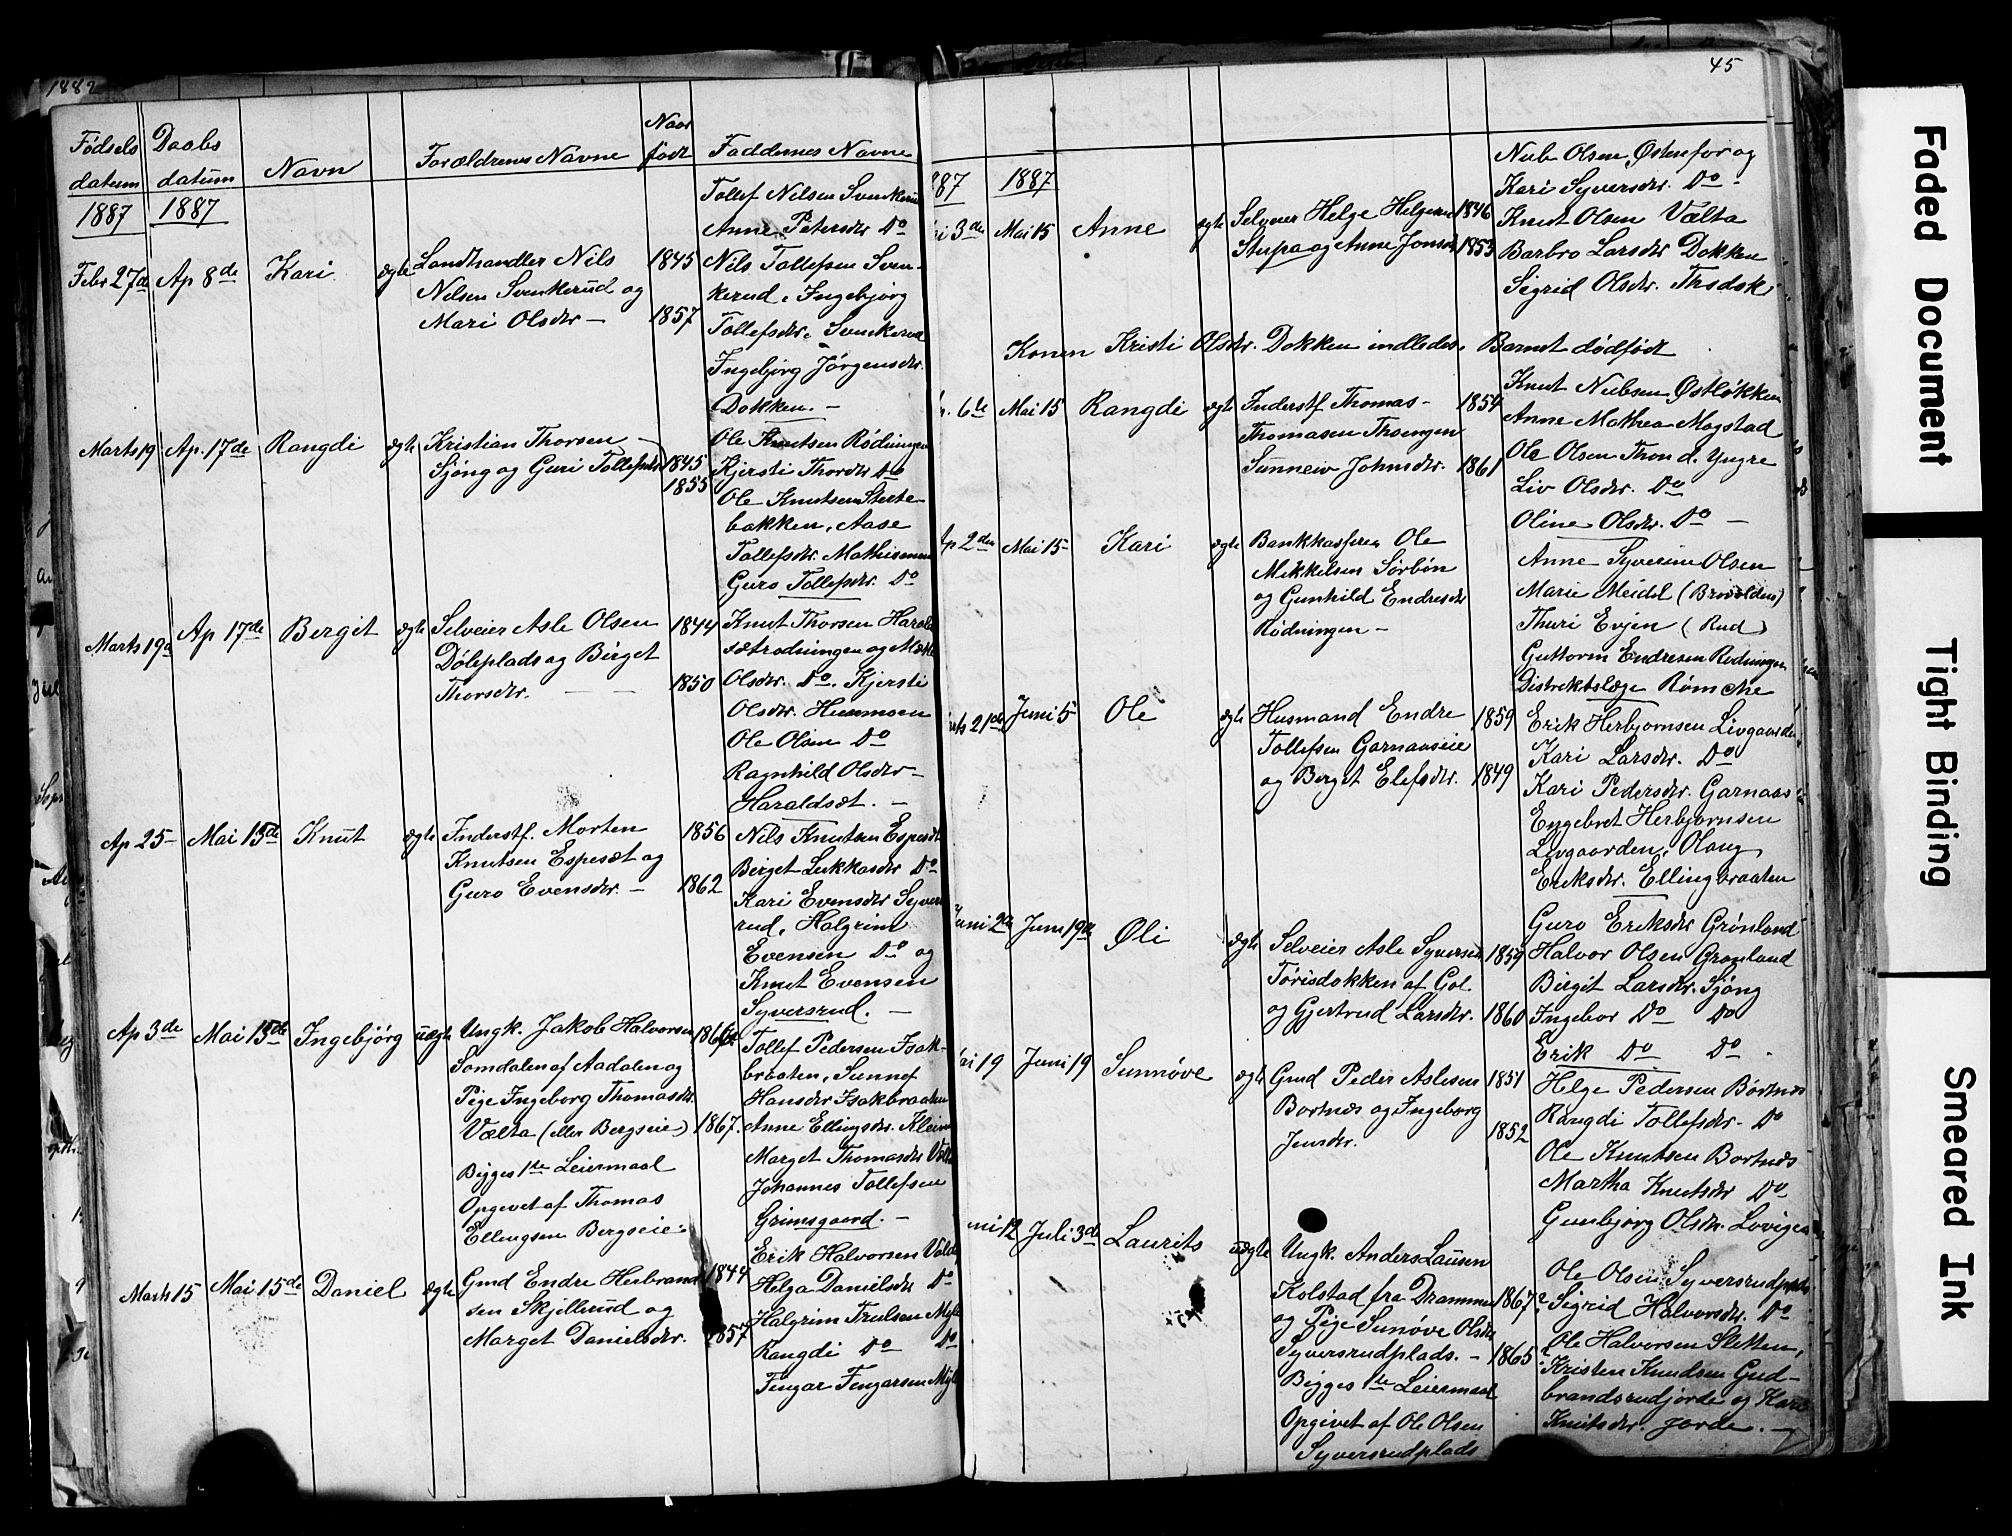 1882
Fødsels datum
Daabs datum
Navn
Forældrens Navne
Naar født
Faddernes Navne
1887
1887
Febr 27de Ap 8de Kari ægte
Landhandler Nils 1845
Nilsen Svenkerud og
Mari Olsdtr – 1857
Tollef Nilsen Svenkerud
Anne Petersdtr Do
Nils Tollefsen Sven-
kerud, Ingebjørg
Tollefsdtr. Svenkerud
Ingebjørg Jørgensdtr.
Dokken. –
Marts 19 Ap. 17de Rangdi ægte
Kristian Thorsen –
Sjong og Guri Tollefsdtr 1845
1855
Ole Knutsen Rødningen
Kjersti Thorsdtr Do
Ole Knutsen Sterte-
bakken, Aase
Tollefsdtr. Mathismoen
Guro Tollefsdtr. Do
Marts 19de Ap 17de Bergit ægte
Selveier Asle Olsen 1844
Döleplads og Birget
Thorsdtr. – – 1850
Knut Thorsen Harald-
sætrodningen og
Olsdtr. Do. Kjersti
Olsdtr. Husmoen
Ole Olsen Do
Ragnhild Olsdtr –
Haraldsæt. –
Ap 25 – Mai 15de Knut ægte
Inderstf. Morten 1856
Knutsen Espesæt og
Guro Evensdtr. – 1862
Nils Knutsen Espesæt
Birget Lukkasdtr Do
Kari Evensdtr Syvers-
rud, Halgrim
Evensen Do og
Knut Evensen
Syversrud. –
Ap 3de Mai 15de Ingebjørg uægte
Ungk. Jakob Halvorsen
Somdalen af Aadalen og
Pige Ingeborg Thomasdtr.
Vælta (eller Bergseie) 1867.
Bigges 1te Leiermaal
Opgivet af Thomas
Ellingsen Bergseie.
Tollef Pedersen Isak-
braaten, Sunnef
Hansdtr Isakbraaten
Anne Ellingsdtr. Kleiven
Marget Thomasdtr Vælta
Johannes Tollefsen
Grimsgaard. –
Marts 15 Mai 15de Daniel ægte
Gmd Endre Herbrand- 1844
sen Skjellerud og
Marget Danielsdtr. 1857
Erik Halvorsen
Helga Danielsdtr Do
Halgrim Truelsen
Rangdi Do Do
Fingar Fingarsen
45
1887
3de Mai 15 Anne ægte
Selveier Helge Helgesen 1846
Stupa og Anne Jonsdtr 1853
Nub Olsen Østenfor og
Kari Syversdtr. Do –
Knut Olsen Vælta
Barbro Larsdtr Dokken
Sigrid Olsdtr.
Konen Kristi Olsdtr. Dokken indledes. Barnet dødfødt
6te Mai 15 Rangdi ægte
Inderstf Thomas – 1854
Thomasen Thoengen
Sunneiv Johnsdtr. 1861
Knut Nubsen Østløkken
Anne Mathea Mogstad
Ole Olsen Thon d. Yngre
Liv Olsdtr. Do
Oline Olsdtr. Do –
Ap 2den Mai 15 Kari ægte
Bankkasserer Ole
Mikkelsen Sørbøn
og Gunhild Endresdtr
Rødningen –
Anne Syverine Olsen
Marie Meidel (Brovolden)
Thuri Evjen (Rud)
Guttorm Endresen Rodningen
Distriktslæge Römcke
21de Juni 5 Ole ægte
Husmand Endre 1859
Tollefsen Garnaaseie
og Berget Elefsdtr. 1849
Erik Herbjornsen Livgaarden
Kari Larsdtr. Do
Kari Pedersdtr. Garnaas
Engebret Herbjornsen
Livgaarden, Olaug
Eriksdtr. Ellingbraaten
Juni 2de Juni 19de Øli ægte
Selveier Asle Syversen 1859
Törisdokken af Gol
og Gjertrud Larsdtr. 1860
Guro Eriksdtr Grønland
Halvor Olsen Grønland
Birgit Larsdtr. Sjong
Ingebor Do Do
Erik Do Do.
19 Juni 19 Sunnøve ægte
Gmd Peder Aslesen 1851
Bortnæs og Ingeborg
Jensdtr. 1852
Helge Pedersen Bortnæs
Rangdi Tollefsdtr. Do
Ole Knutsen Bortnæs
Martha Knutsdtr Do
Gunbjørg Olsdtr.
12 Juli 3de Laurits uægte
Ungk. Anders Lausen
Kolstad fra Drammen 1867?
og Pige Sunøve Olsdtr
Syversrudplads. – 1865?
Bigges 1te Leiermaal
Opgivet af Ole Olsen
Syversrudplads
Ole Olsen Syversrudplads
Sigrid Halvorsdtr. Do
Ole Halvorsen Sletten,
Kristen Knudsen Gud-
brandsrudjorde og Kari
Knutsdtr. Jorde. –
Faded Document
Tight Binding
Smeared Ink